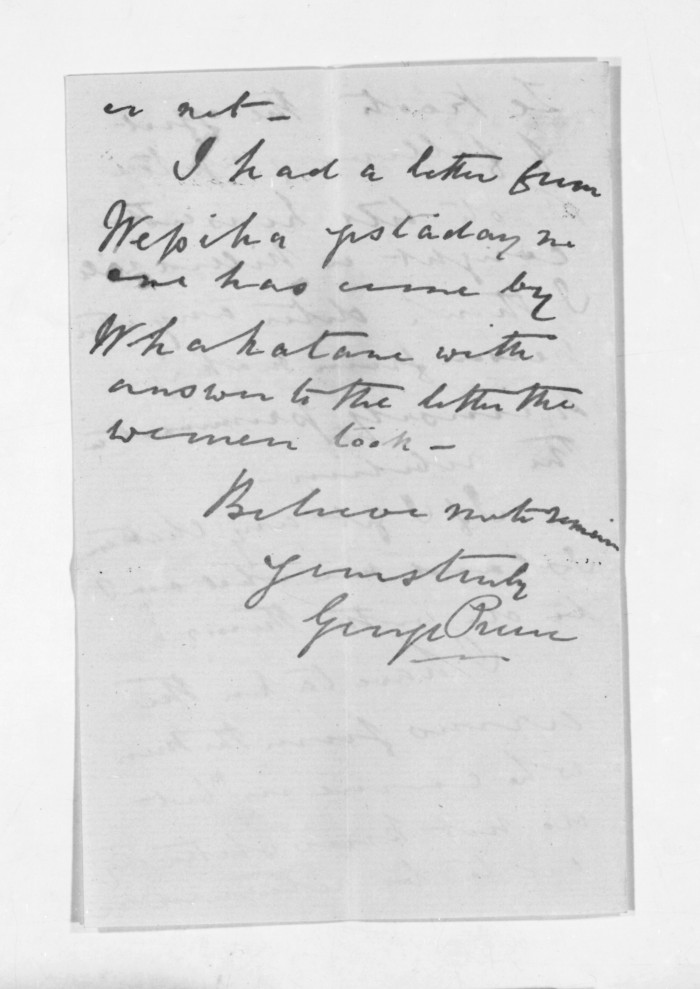 or not -
I had a letter from
Wepiha yestaday no
one has come by
Whakatane with
answer to the letter the
women took -
Believe me to remain
Yours truly
George Preece